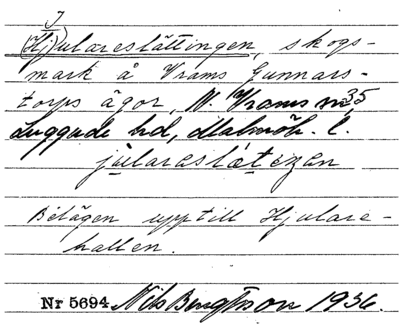 J
(Hj)ulareslättingen, skogs-
mark å Vrams Gunnars-
torps ägor, N. Vrams sn 35,
Luggude hd, Malmöh. l.
jularaslætezan
Belägen upptill Hjulare-
hallen.
Nr 5694 Nils Bengtsson 1936.